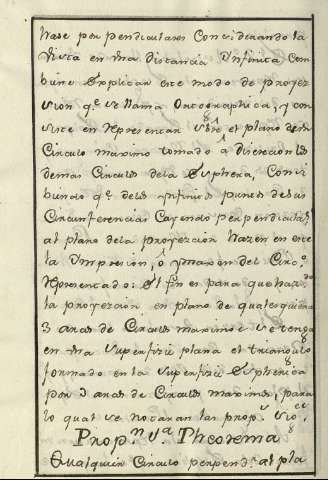 hase perpendiculares Considerando la
Vista en Una distancia Ynfinita Com
bine Explicar este modo de proyec
sion q.e se llama Ortographica, y con
siste en representar sbre el plano de Un
Circulo maximo tomado â discrecion los
demas Circulos dela Esphera, Consi
q.e delos Ynfinitos puntos de sus
Circunferencias Cayendo perpendicular.s
al plano dela proyeccion hazen en este
la Ympresion, ô Ymagen del Circ.o
representado: El fin es para que haz.do
la proyeccion en plano de qualesquiera
3 arcos de Circulos maximos se tenga
en Una superfizie plana el triangulo
formado en la superfizie Espherica
por 3 arcos de Circulos maximos, para
lo qual se notaran las prop.s
Prop.n 1.a Theorema
Qualquier Circulo perpend.r al pla